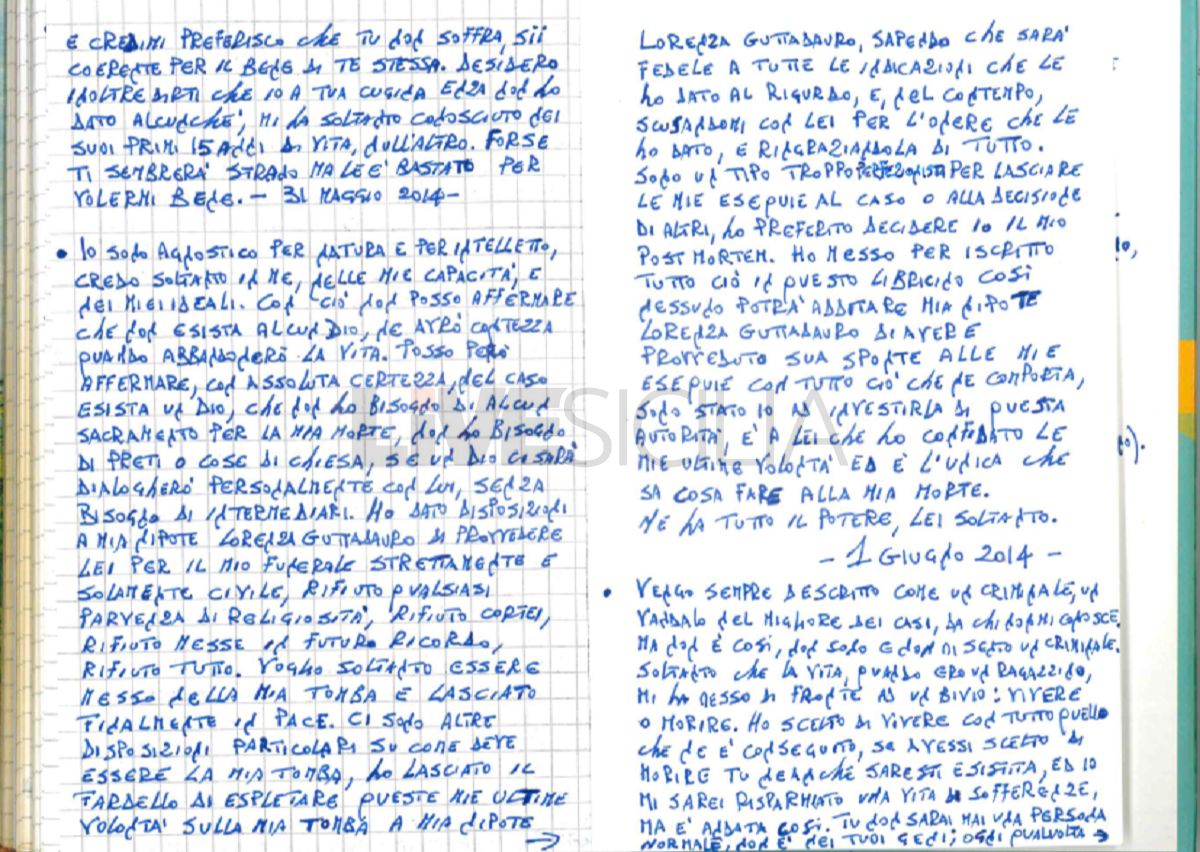 E CREDIMI PREFERISCO CHE TU NON SOFFRA, SII
COERENTE PER IL BENE DI TE STESSA. DESIDERO
INOLTRE DIRTI CHE IO A TUA CUGINA ENZA NON HO
DATO ALCUNCHÉ, MI HA SOLTANTO CONOSCIUTO NEI
SUOI PRIMI 15 ANNI DI VITA, NULL'ALTRO. FORSE
TI SEMBRERÀ STRANO MA LE È BASTATO PER
VOLERMI BENE. – 31 MAGGIO 2014 –
• IO SONO AGNOSTICO PER NATURA E PER INTELLETTO,
CREDO SOLTANTO IN ME, NELLE MIE CAPACITÀ, E
NEI MIEI IDEALI. CON CIÒ NON POSSO AFFERMARE
CHE NON ESISTA ALCUN DIO, NE AVRÒ CONTEZZA
QUANDO ABBANDONERÒ LA VITA. POSSO PERÒ
AFFERMARE, CON ASSOLUTA CERTEZZA, NEL CASO
ESISTA UN DIO, CHE NON HO BISOGNO DI ALCUN
SACRAMENTO PER LA MIA MORTE, NON HO BISOGNO
DI PRETI O COSE DI CHIESA, SE UN DIO CI SARÀ
DIALOGHERÒ PERSONALMENTE CON LUI, SENZA
BISOGNO DI INTERMEDIARI. HO DATO DISPOSIZIONI
A MIA NIPOTE LORENZA GUTTADAURO DI PROVVEDERE
LEI PER IL MIO FUNERALE STRETTAMENTE E
SOLAMENTE CIVILE, RIFIUTO QUALSIASI
PARVENZA DI RELIGIOSITÀ, RIFIUTO CORTEI,
RIFIUTO MESSE IN FUTURO RICORDO,
RIFIUTO TUTTO. VOGLIO SOLTANTO ESSERE
MESSO NELLA MIA TOMBA E LASCIATO
FINALMENTE IN PACE. CI SONO ALTRE
DISPOSIZIONI PARTICOLARI SU COME DEVE
ESSERE LA MIA TOMBA, HO LASCIATO IL
FARDELLO DI ESPLETARE QUESTE MIE ULTIME
VOLONTÀ SULLA MIA TOMBA A MIA NIPOTE →
LORENZA GUTTADAURO, SAPENDO CHE SARÀ
FEDELE A TUTTE LE INDICAZIONI CHE LE
HO DATO AL RIGURDO, E, NEL CONTEMPO,
SCUSANDOMI CON LEI PER L'ONERE CHE LE
HO DATO, E RINGRAZIANDOLA DI TUTTO.
SONO UN TIPO TROPPO PERFEZIONISTA PER LASCIARE
LE MIE ESEQUIE AL CASO O ALLA DECISIONE
DI ALTRI, HO PREFERITO DECIDERE IO IL MIO
POST MORTEM. HO MESSO PER ISCRITTO
TUTTO CIÒ IN QUESTO LIBRICINO COSÌ
NESSUNO POTRÀ ADDITARE MIA NIPOTE
LORENZA GUTTADAURO DI AVERE
PROVVEDUTO SUA SPONTE ALLE MIE
ESEQUIE CON TUTTO CIÒ CHE NE COMPORTA,
SONO STATO IO AD INVESTIRLA DI QUESTA
AUTORITÀ, È A LEI CHE HO CONFIDATO LE
MIE ULTIME VOLONTÀ ED È L'UNICA CHE
SA COSA FARE ALLA MIA MORTE.
NE HA TUTTO IL POTERE, LEI SOLTANTO.
– 1 GIUGNO 2014 –
• VENGO SEMPRE DESCRITTO COME UN CRIMINALE, UN
VANDALO NEL MIGLIORE DEI CASI, DA CHI NON MI CONOSCE.
MA NON È COSÌ, NON SONO E NON MI SENTO UN CRIMINALE.
SOLTANTO CHE LA VITA, QUANDO ERO UN RAGAZZINO,
MI HA MESSO DI FRONTE AD UN BIVIO: VIVERE
O MORIRE. HO SCELTO DI VIVERE CON TUTTO QUELLO
CHE NE È CONSEGUITO, SE AVESSI SCELTO DI
MORIRE TU NEANCHE SARESTI ESISTITA, ED IO
MI SAREI RISPARMIATO UNA VITA DI SOFFERENZE,
MA È ANDATA COSÌ. TU NON SARAI MAI UNA PERSONA
NORMALE, NON È NEI TUOI GENI; OGNI QUALVOLTA →
LIVESICILIA